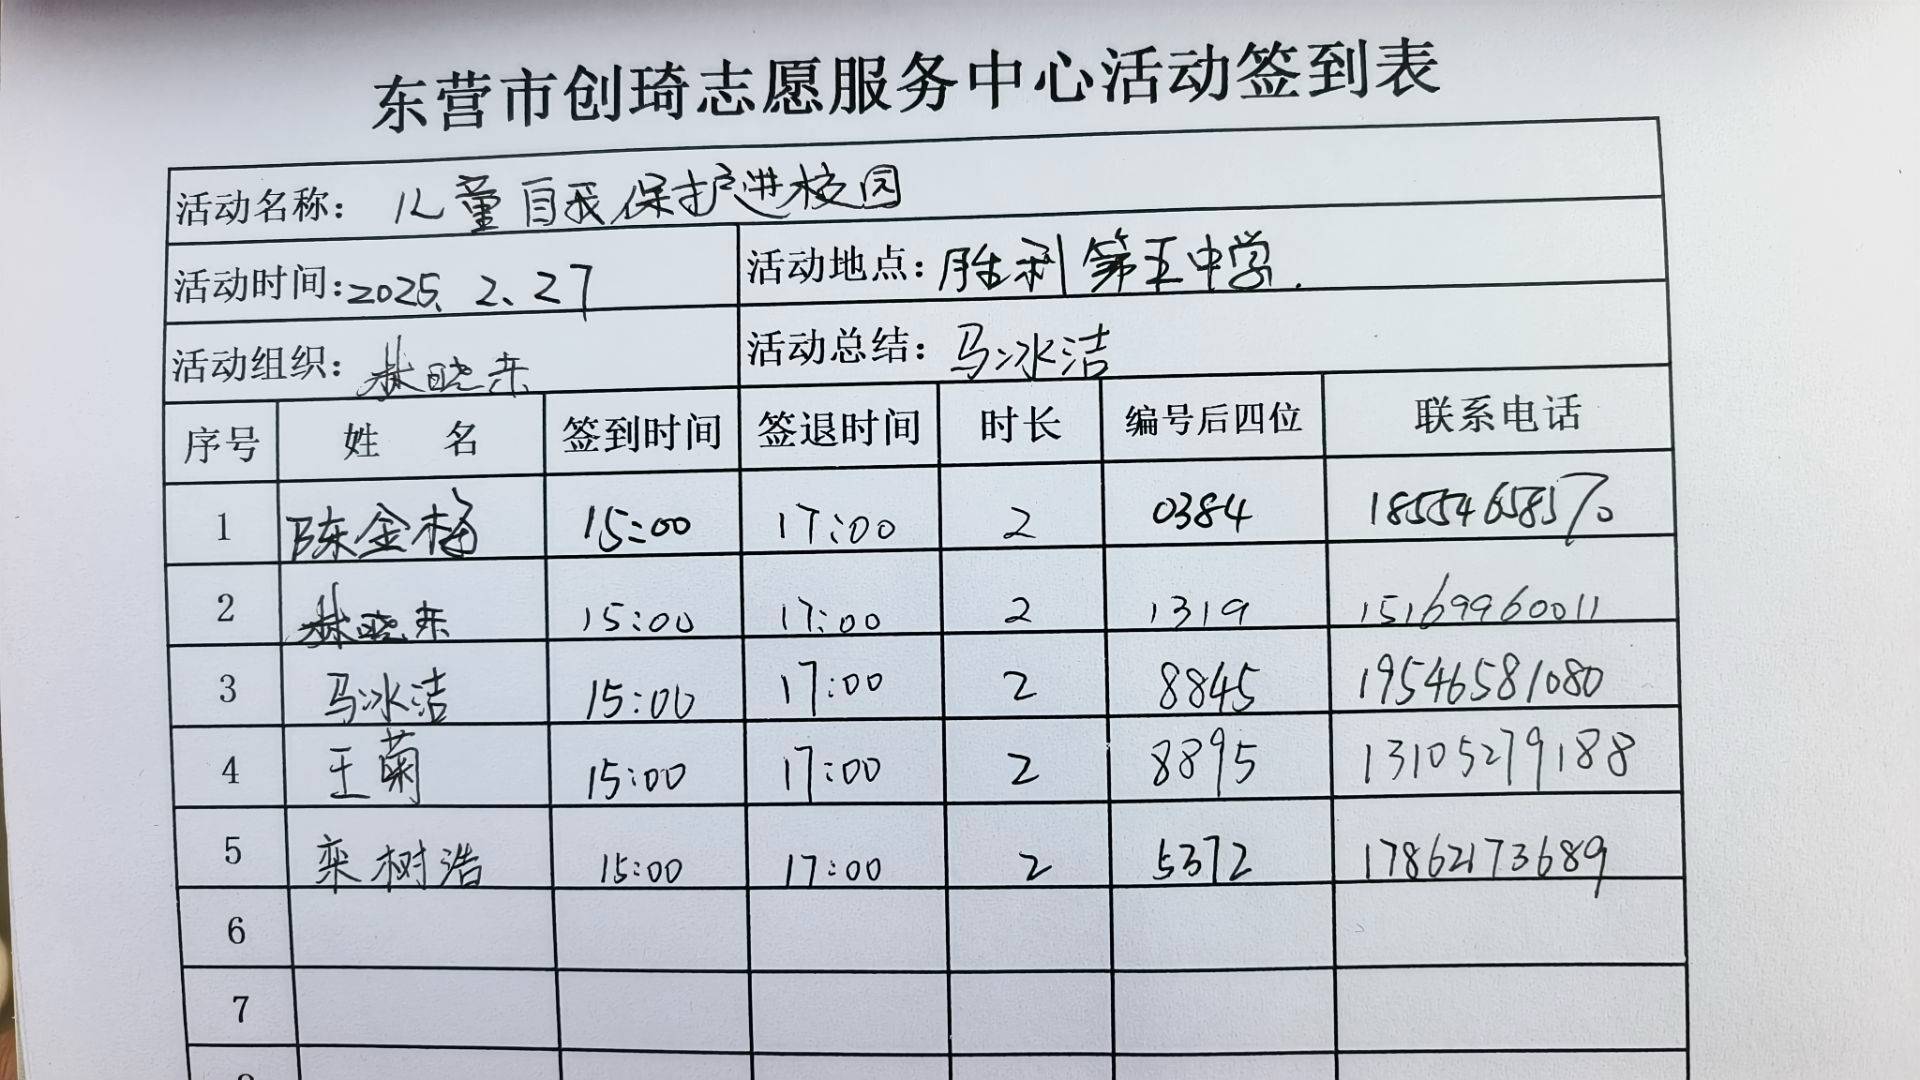 东营市创琦志愿服务中心活动签到表
活动名称： 儿童自我保护进校园
活动时间：2025.2.27 活动地点：胜利第五中学.
活动组织：林晓东 活动总结：马冰洁
序号 姓 名 签到时间 签退时间 时长 编号后四位 联系电话
1 陈金梅 15:00 17:00 2 0384 18554658570
2 林晓东 15:00 17:00 2 1319 15169960011
3 马冰洁 15:00 17:00 2 8845 19546581080
4 王菊 15:00 17:00 2 8895 13105279188
5 栾树浩 15:00 17:00 2 5372 17862173689
6
7